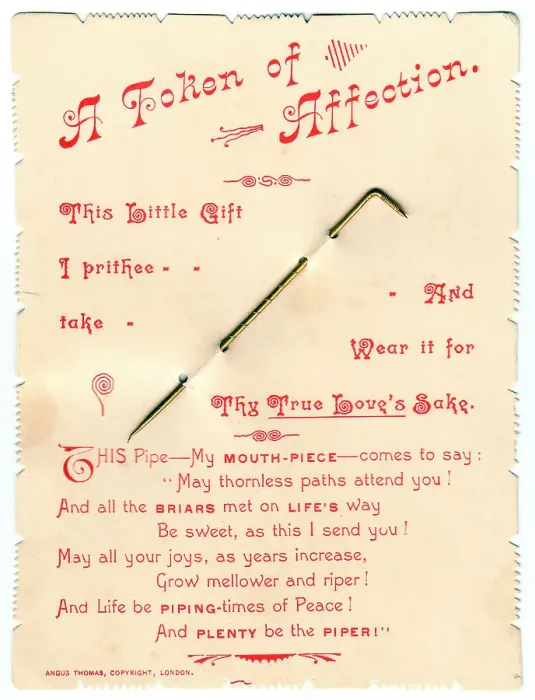 A Token of
Affection.
This Little Gift
I prithee - -
take -
- And
Wear it for
Thy True Love's Sake.
THIS Pipe—My MOUTH-PIECE—comes to say:
"May thornless paths attend you!
And all the BRIARS met on LIFE'S way
Be sweet, as this I send you!
May all your joys, as years increase,
Grow mellower and riper!
And Life be PIPING-times of Peace!
And PLENTY be the PIPER!"
ANGUS THOMAS, COPYRIGHT, LONDON.